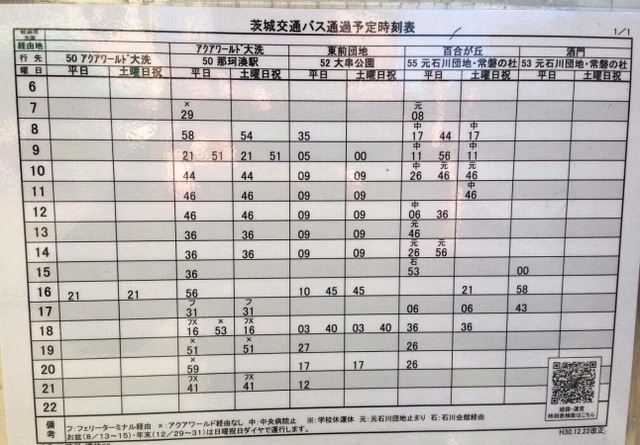 茨城交通バス通過予定時刻表
1/1
経由地 アクアワールド大洗 東前団地 百合が丘 酒門
行先 50 アクアワールド大洗 50 那珂湊駅 52 大串公園 55 元石川団地・常磐の杜 53 元石川団地・常磐の杜
曜日 平日 土曜日祝 平日 土曜日祝 平日 土曜日祝 平日 土曜日祝 平日 土曜日祝
6
× 元
7 29 08
中 中
8 58 54 35 17 44 17
中 中
9 21 51 21 51 05 00 11 56 11
中 元 元
10 44 44 09 09 26 46 46
中
11 46 46 09 09 46
中
12 46 46 09 09 06 36
元
13 36 46 09 09 46
元 元
14 36 46 09 09 26 56
石
15 36 53 00
16 21 21 56 10 45 45 21 58
フ フ
17 31 31 06 06 43
フX × フX
18 16 53 16 03 40 03 40 36 36
× ×
19 51 51 27 26
×
20 59 17 17 26
フX フX
21 41 41 12
22
備考
フ:フェリーターミナル経由 ×:アクアワールド経由なし 中:中央病院止 ※:学校休運休 元:元石川団地止まり 石:石川会館経由
お盆(8/13~15)・年末(12/29~31)は日曜祝日ダイヤで運行します。
経路・運賃
時刻表検索はこちら
H30.12.22改正